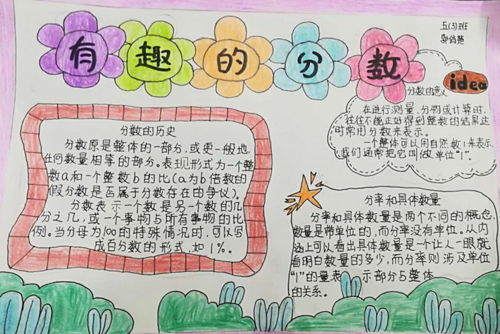 有趣的分数
五(5)班
idea
分数的意义
在进行测量、分物或计算时,
往往不能正好得到整数的结果,这
时常用分数来表示。
一个整体可以用自然数1来表示,
我们通常把它叫做单位"1"。
分数的历史
分数原是整体的一部分,或更一般地,
任何数量相等的部分。表现形式为一个整
数a和一个整数b的比(a为b倍数的
假分数是否属于分数存在的争议)。
分数表示一个数是另一个数的几
分之几,或一个事物与所有事物的比
例。当分母为100的特殊情况时,可以写
成百分数的形式,如1%。
分率和具体数量
分率和具体数量是两个不同的概念,
数量是带单位的,而分率没有单位。从内
涵上可以看出具体数量是一个让人一眼就
看明白数量的多少,而分率则涉及单位
"1"的量表示部分与整体
的关系。